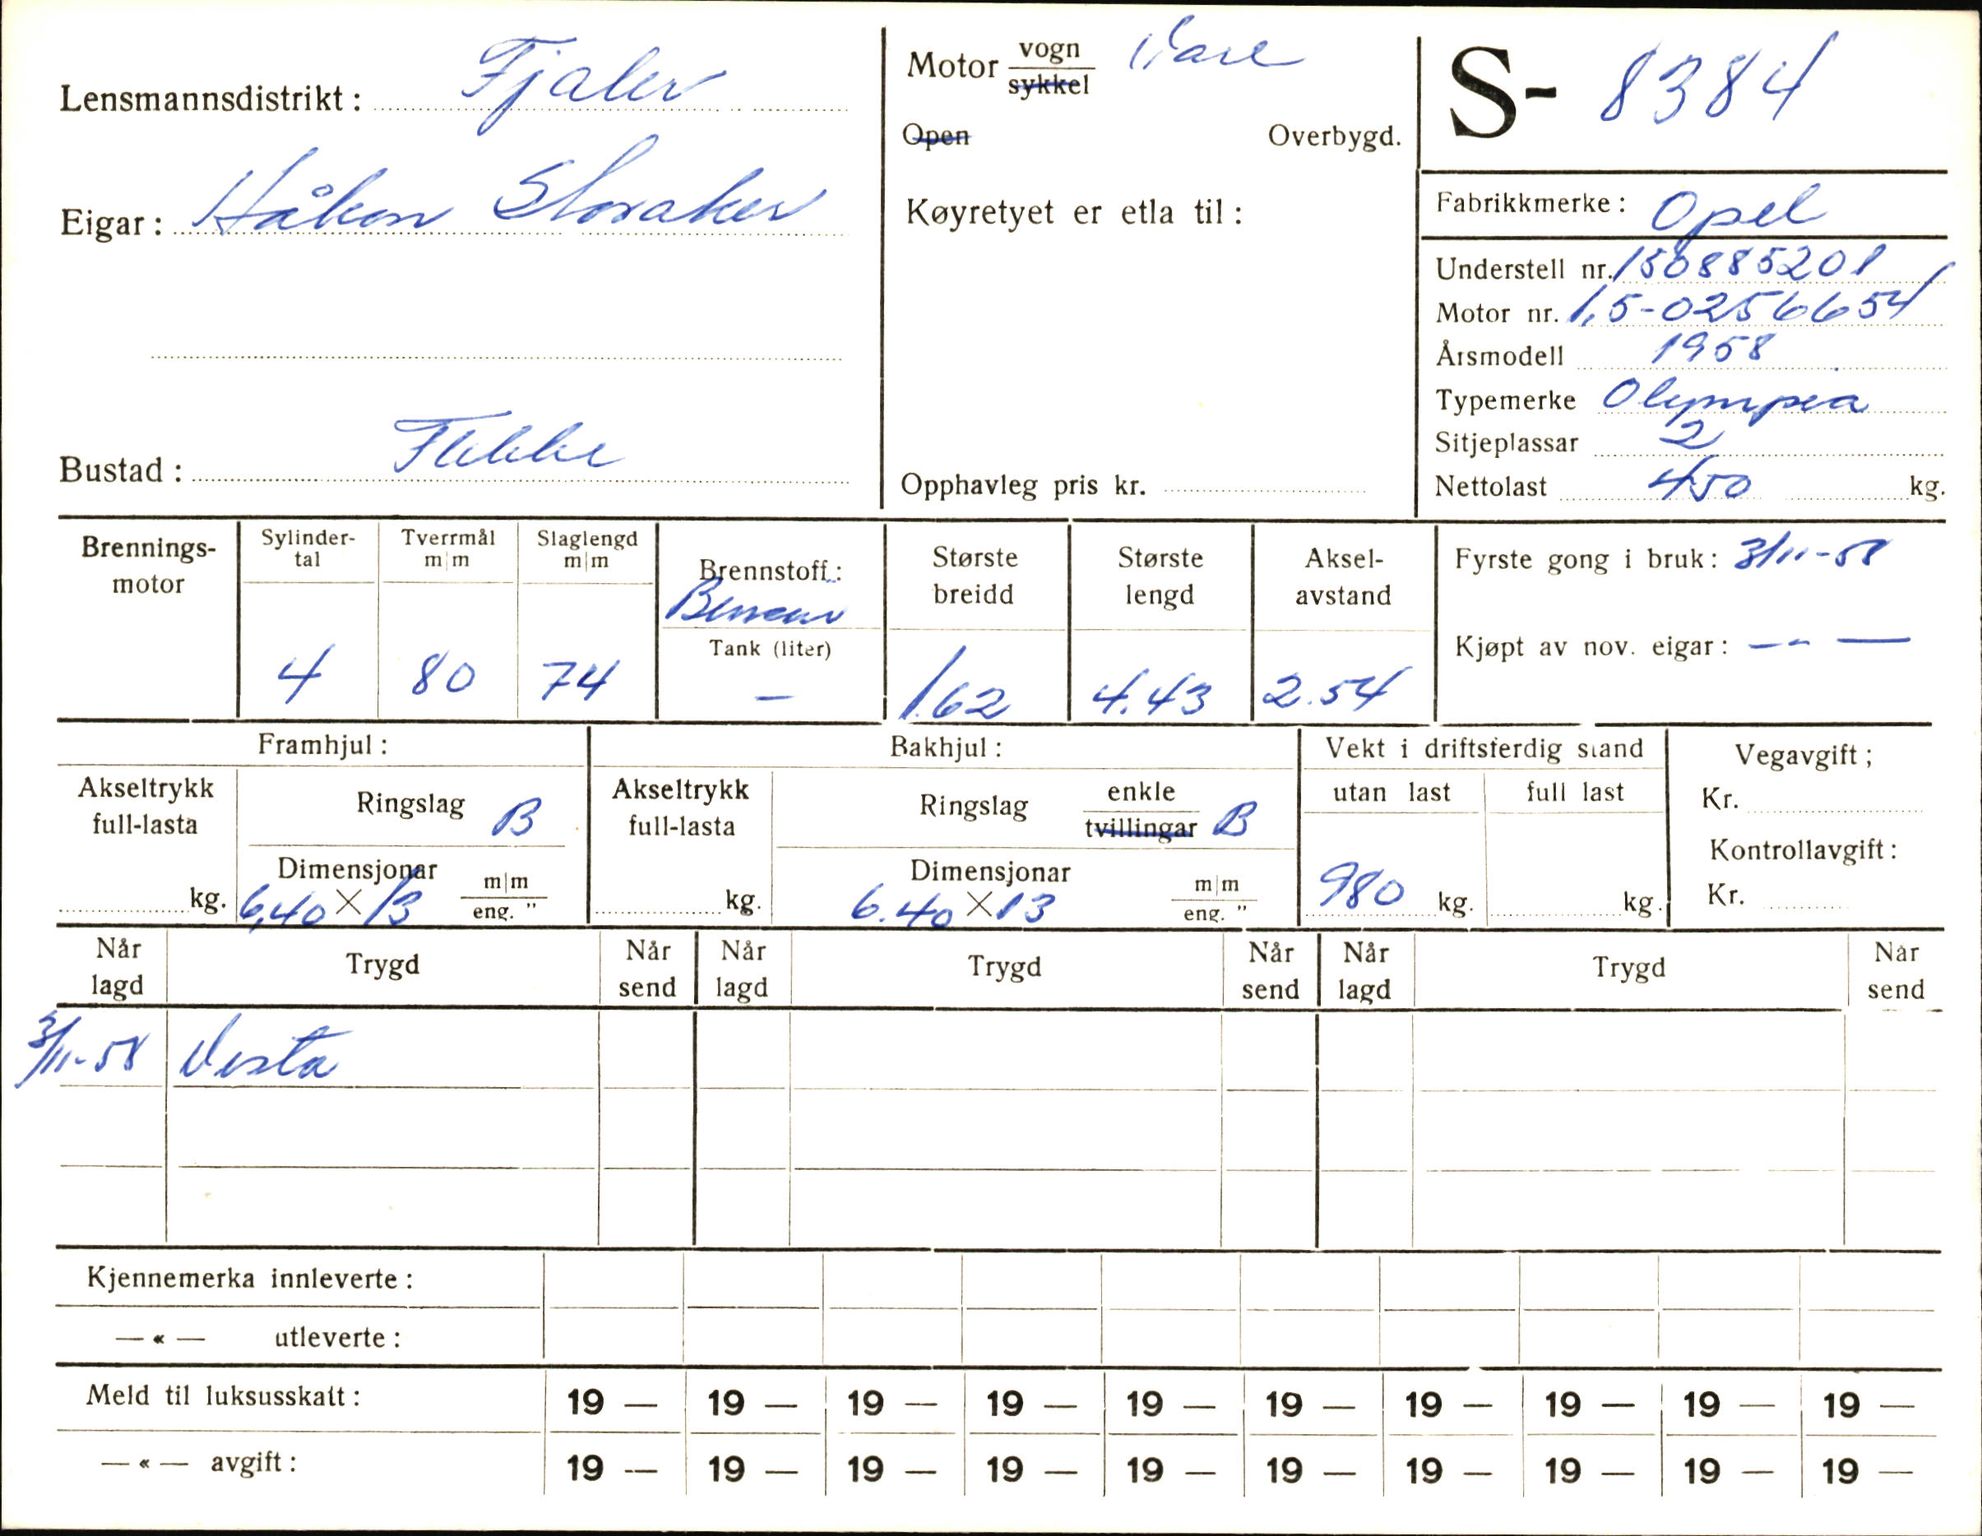 Lensmannsdistrikt: Fjaler
Eigar: Håkon Storaker
Bustad: Flekke
Motor vogn Vare
sykkel
Open Overbygd.
Køyretyet er etla til:
Opphavleg pris kr.
S- 8384
Fabrikkmerke: Opel
Understell nr. 150885201
Motor nr. 1,5-0256654
Årsmodell 1958
Typemerke Olympia
Sitjeplassar 2
Nettolast 450 kg.
Brennings-
motor
Sylinder-
tal
4
Tverrmål
m|m
80
Slaglengd
m|m
74
Brennstoff:
Bensin
Tank (liter)
—
Største
breidd
1.62
Største
lengd
4.43
Aksel-
avstand
2.54
Fyrste gong i bruk: 3/11-58
Kjøpt av nov. eigar: — — —
Framhjul:
Akseltrykk
full-lasta
kg.
Ringslag B
Dimensjonar
6,40 × 13 m|m
eng. "
Bakhjul:
Akseltrykk
full-lasta
kg.
Ringslag enkle
tvillingar B
Dimensjonar
6.40 × 13 m|m
eng. "
Vekt i driftsferdig stand
utan last full last
980 kg. kg.
Vegavgift;
Kr.
Kontrollavgift:
Kr.
Når
lagd Trygd Når
send Når
lagd Trygd Når
send Når
lagd Trygd Når
send
3/11-58 Vesta
Kjennemerka innleverte:
— « — utleverte:
Meld til luksusskatt: 19 — 19 — 19 — 19 — 19 — 19 — 19 — 19 — 19 — 19 —
— « — avgift: 19 — 19 — 19 — 19 — 19 — 19 — 19 — 19 — 19 — 19 —